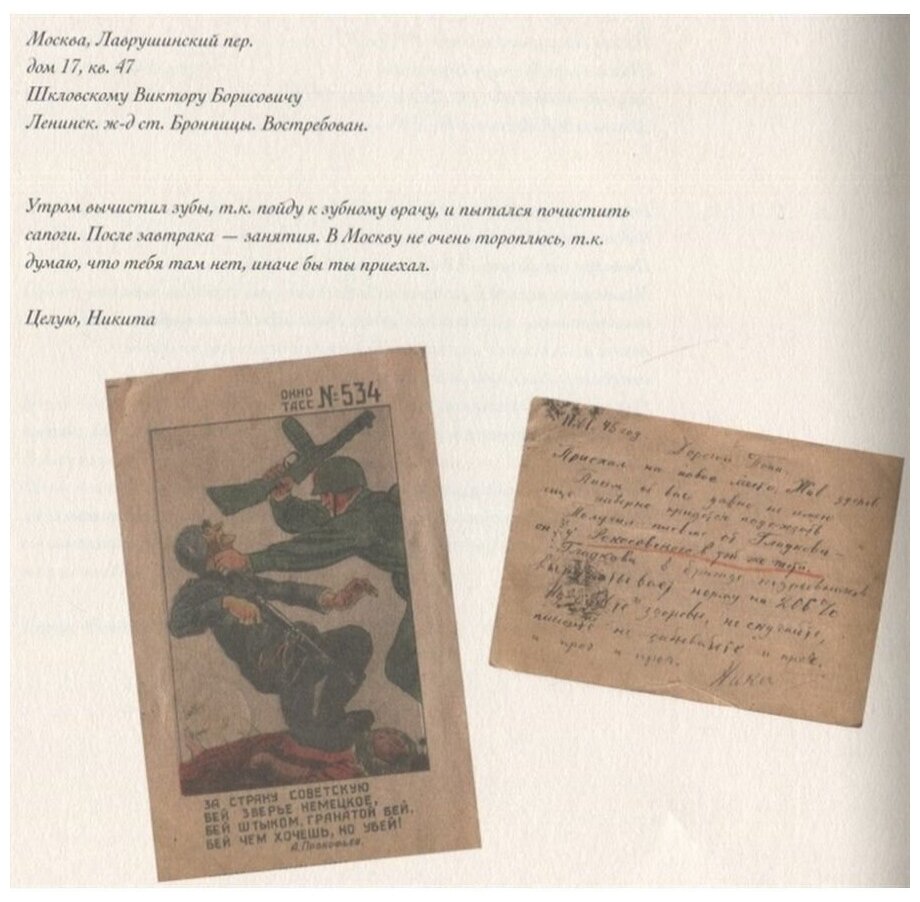 Москва, Лаврушинский пер.
дом 17, кв. 47
Шкловскому Виктору Борисовичу
Ленинск. ж-д ст. Бронницы. Востребован.
Утром вычистил зубы, т.к. пойду к зубному врачу, и пытался почистить
сапоги. После завтрака — занятия. В Москву не очень тороплюсь, т.к.
думаю, что тебя там нет, иначе бы ты приехал.
Целую, Никита
ОКНО
ТАСС №534
ЗА СТРАНУ СОВЕТСКУЮ
БЕЙ ЗВЕРЬЕ НЕМЕЦКОЕ,
БЕЙ ШТЫКОМ, ГРАНАТОЙ БЕЙ,
БЕЙ ЧЕМ ХОЧЕШЬ, НО УБЕЙ!
А. Прокофьев.
45 год
Дорогой Папа.
Приехал на новое место. Жив здоров
Писем от вас давно не имею
еще наверно придется подождать
Получил письмо от Гладкова —
он у Рокоссовского в
Гладкова в бригаде
вырабатывает норму на 206%
здоровы, не скучайте,
пишите не забывайте и проч.
и проч и проч.